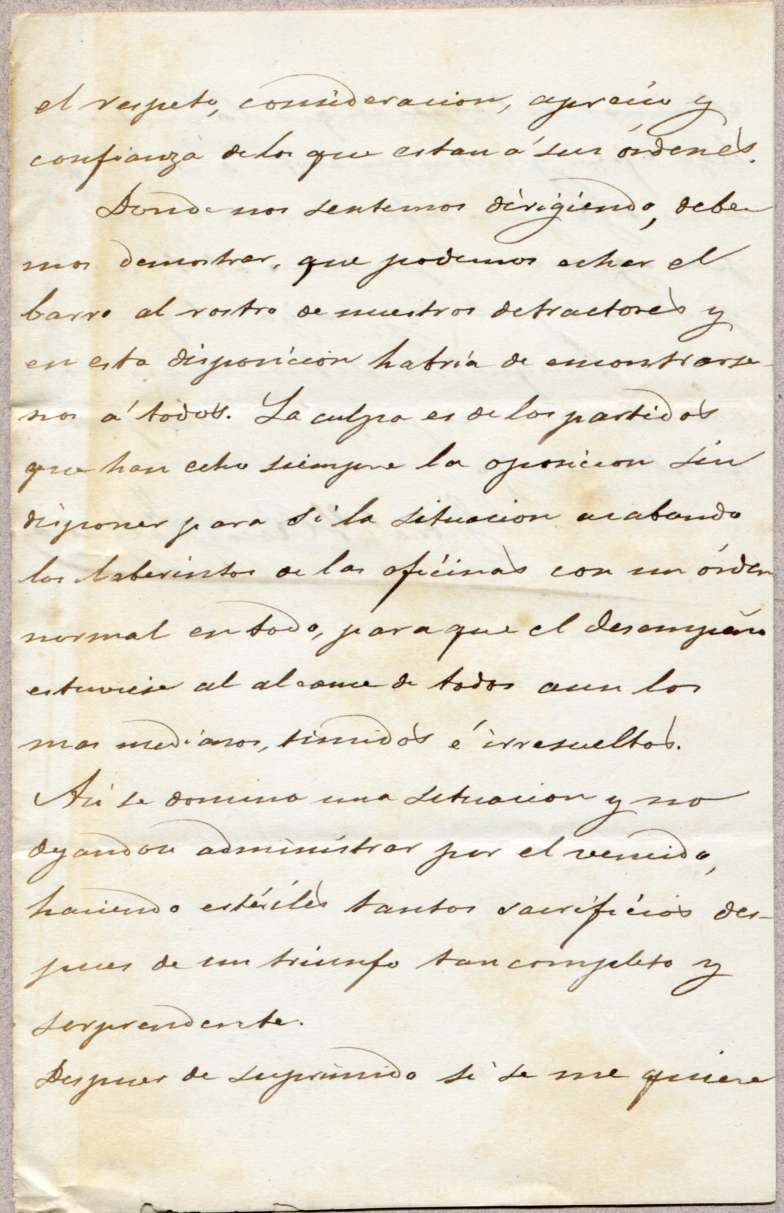 el respeto, consideracion, aprecio y
confianza de los que estan á sus órdenes.
Donde nos sentemos dirigiendo, debe-
mos demostrar, que podemos echar el
barro al rostro de nuestros detractores y
en esta disposicion habría de encontrarse-
nos á todos. La culpa es de los partidos
que han echo siempre la oposicion sin
disponer para sí la situacion acabando
los laberintos de las oficinas con un órden
normal en todo, para que el desempeño
estuviese al alcance de todos aun los
mas medianos, timidos é irresueltos.
Así se domina una situacion y no
dejandose administrar por el vencido,
haciendo estériles tantos sacrificios des-
pues de un triunfo tan completo y
sorprendente.
Despues de suprimido si se me quiere